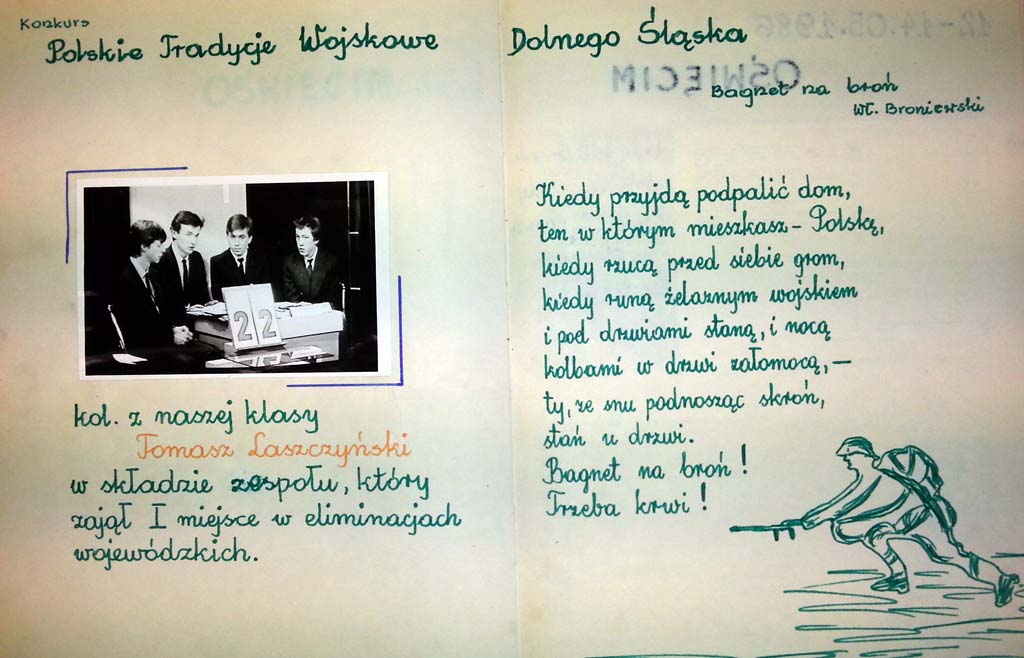 Konkurs
Polskie Tradycje Wojskowe Dolnego Śląska
22
kol. z naszej klasy
Tomasz Laszczyński
w składzie zespołu, który
zajął I miejsce w eliminacjach
wojewódzkich.
12-14.05.1986
OŚWIĘCIM
Bagnet na broń
Wł. Broniewski
Kiedy przyjdą podpalić dom,
ten w którym mieszkasz – Polskę,
kiedy rzucą przed siebie grom,
kiedy runą żelaznym wojskiem
i pod drzwiami staną, i nocą
kolbami w drzwi załomocą, –
ty, ze snu podnosząc skroń,
stań u drzwi.
Bagnet na broń!
Trzeba krwi!